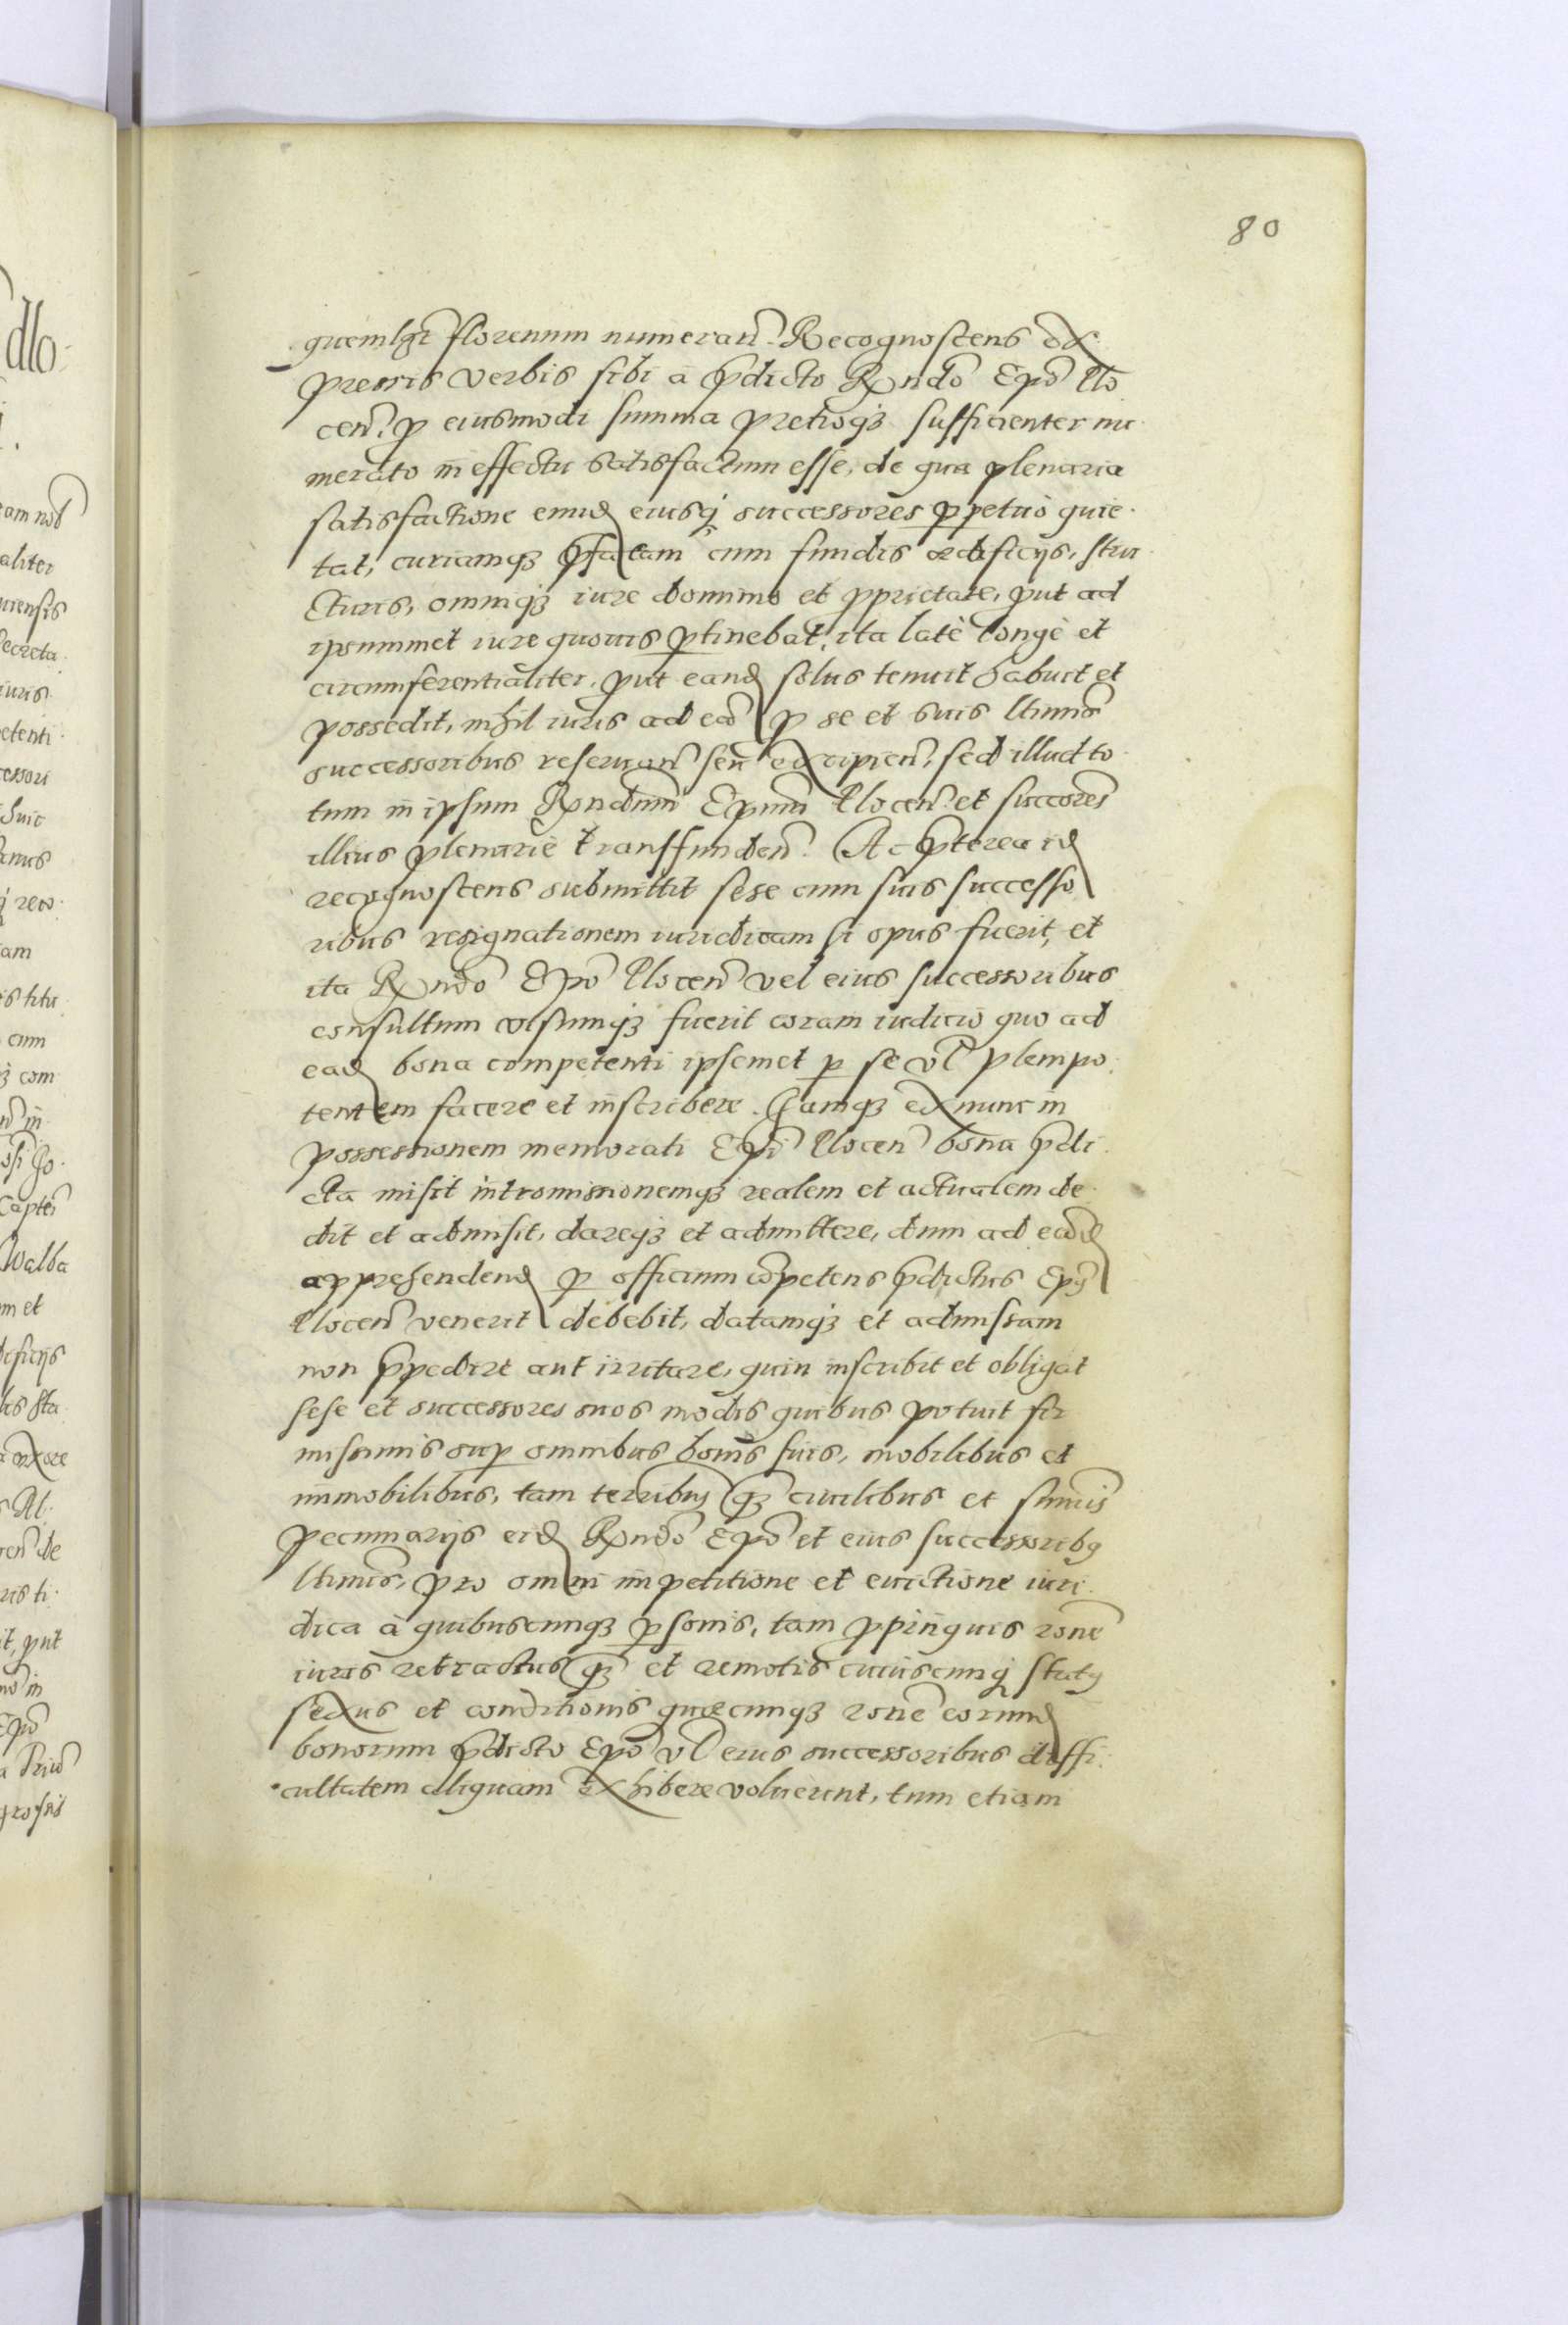 80
quemlibet florenum numeran. Recognoscens ex
pressis verbis sibi a pdicto Rndo Epo Plo
cen. p eiusmodi summa pretioqz sufficienter nu
merato in effectu satisfactum esse, de qua plenaria
satisfactione eund eiusq successores ppetuò quie
tat, curiamqz pfatam cum fundis ædificijs, stru
cturis, omniqz iure dominio et pprietate, put ad
ipsummet iure quouis ptinebat, ita latè longè et
circumferentialiter, put eand solus tenuit habuit et
possedit, nihil iuris ad eã p se et suis ltimis
successoribus reseruan seu excipien, sed illud to
tum in ipsum Rndum Epum Plocen. et succores
illius plenariè transffunden. Ac pterea id
recognoscens submittit sese cum suis successo
ribus resignationem iuridicam si opus fuerit, et
ita Rndo Epo Plocen vel eius successoribus
consultum visumqz fuerit coram iudicio quo ad
ead bona competenti ipsemet p se vl plenipo
tentem facere et inscribere. Iamqz ex nunc in
possessionem memorati Epi Plocen bona pdi
cta misit intromissionemqz realem et actualem de
dit et admisit, dareqz et admittere, dum ad eãd
apprehendend p officium cõpetens pdictus Epus
Plocen venerit debebit, datamqz et admissam
non ppedire aut irritare, quin inscribit et obligat
sese et successores suos modis quibus potuit fir
missimis sup omnibus bonis suis, mobilibus et
immobilibus, tam terribus qz ciuilibus et summis
pecuniarijs eid Rndo Epo et eius successoribus
ltimis, pro omni impetitione et euictione iuri
dica à quibuscunqz psonis, tam ppinquis rone
iuris retractus qz et remotis cuiuscunq status
sexus et conditionis quæcunqz rone eorund
bonorum pdicto Epo vl eius successoribus diffi
cultatem aliquam exhibere voluerint, tum etiam